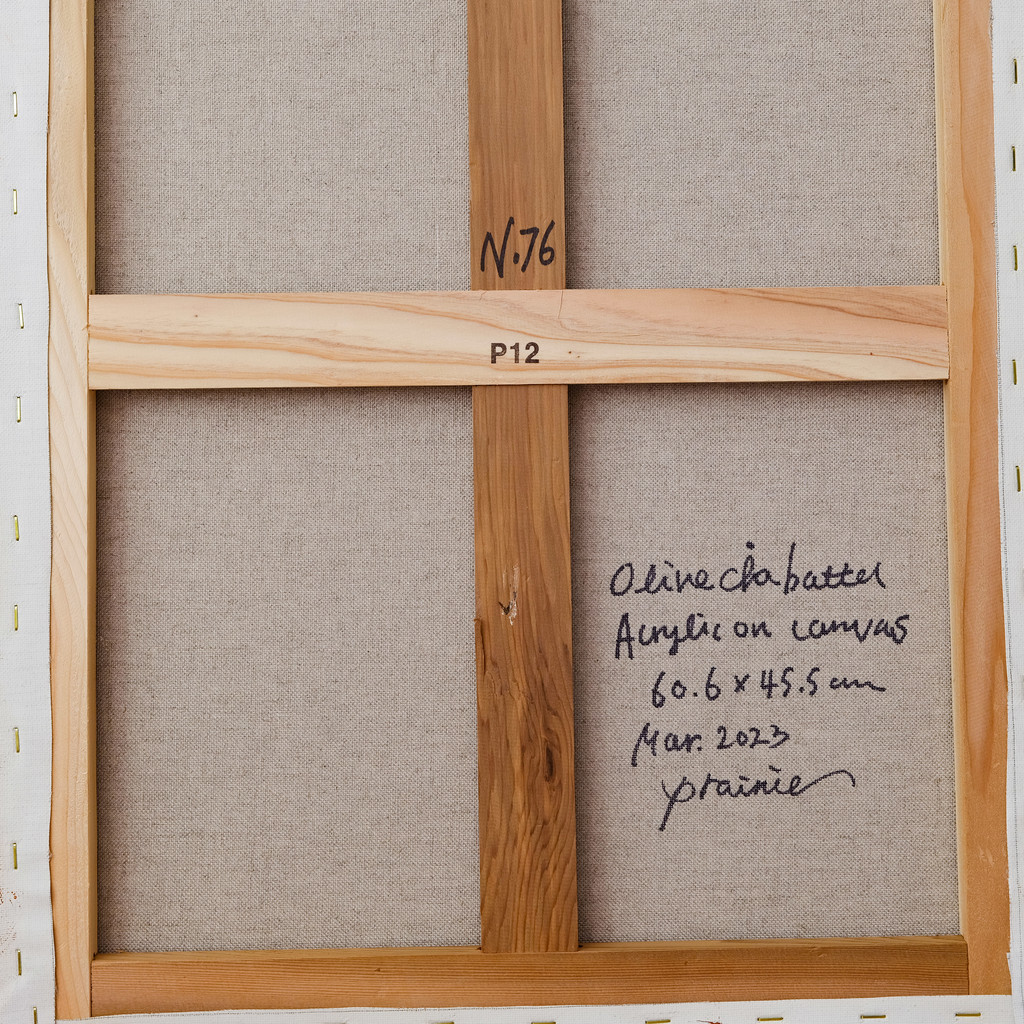 N.76
P12
Olive
Acrylic on canvas
60.6 × 45.5 cm
Mar. 2023
prairie